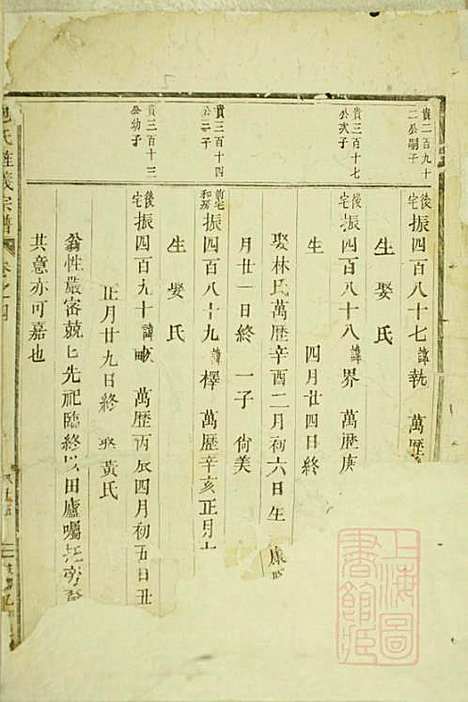 貴二百九十
二公嗣子
後宅振四百八十七諱執 萬歷
生 娶 氏
貴三百十七
公次子
後宅振四百八十八諱界 萬歷庚
生 四月廿四日終
娶林氏萬歷辛酉二月初六日生 康
月廿一日終 一子 尙美
貴三百十四
公子
前宅和房振四百八十九諱檡 萬歷辛亥正月十
生 娶 氏
貴三百十三
公幼子
後宅振四百九十諱 萬歷丙辰四月初五日丑
正月廿九日終 娶黃氏
翁性嚴密兢上先祀臨終以田廬囑托旁
其意亦可嘉也
氏 義宗譜 卷之四
上海圖
書館藏